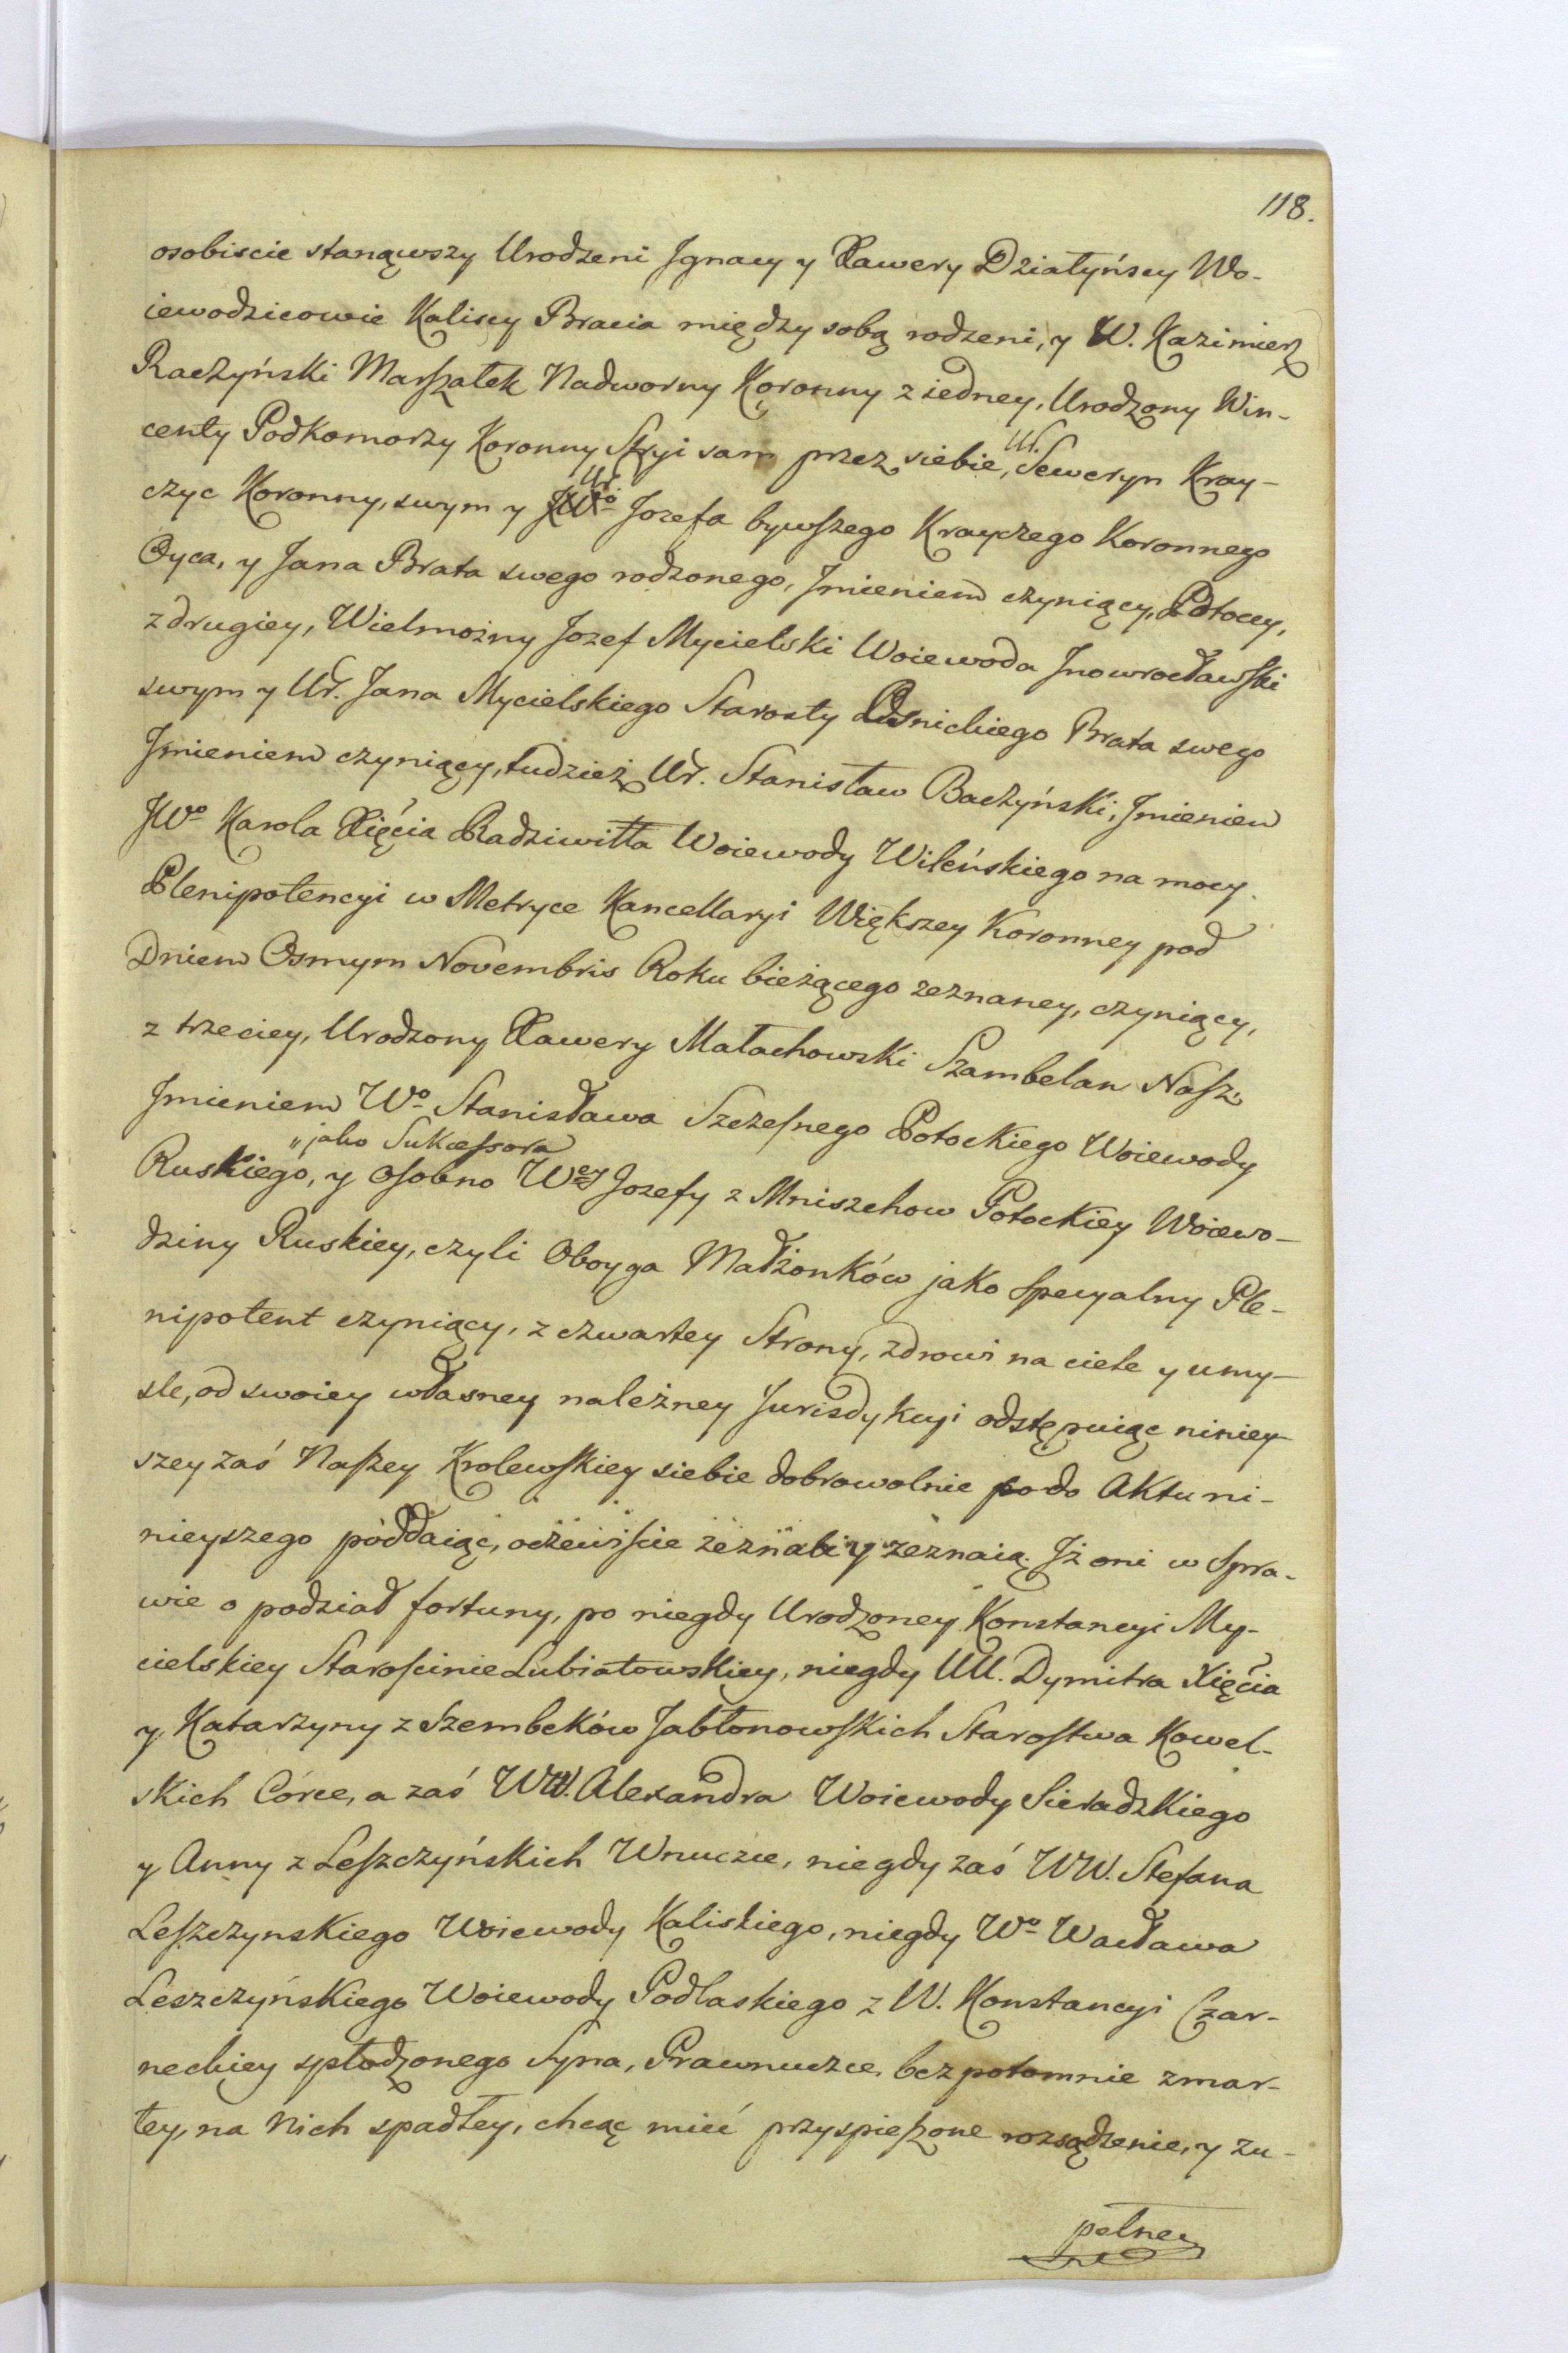 118.
osobiscie stanąwszy Urodzeni Jgnacy y Xawery Działyńscy Wo-
iewodzicowie Kaliscy Bracia między sobą rodzeni, y W. Kazimierz
Raczyński Marszałek Nadworny Koronny z iedney, Urodzony Win-
centy Podkomorzy Koronny Stryi sam przez siebie, Ur. Seweryn Kray-
czyc Koronny, swym y Ur. Jozefa bywszego Krayczego Koronnego
Oyca, y Jana Brata swego rodzonego, Jmieniem czyniący, Potoccy,
z drugiey, Wielmożny Jozef Mycielski Woiewoda Jnowrocławski
swym y Ur. Jana Mycielskiego Starosty Osnickiego Brata swego
Jmieniem czyniący, tudzież Ur. Stanisław Baczyński, Jmieniem
JWo Karola Xięcia Radziwiłła Woiewody Wileńskiego na mocy
Plenipotencyi w Metryce Kancellaryi Większey Koronney pod
Dniem Osmym Novembris Roku bieżącego zeznaney, czyniący,
z trzeciey, Urodzony Xawery Małachowski Szambelan Nasz,
Jmieniem Wo Stanisława Szczesnego Potockiego Woiewody
"jako Sukcessora
Ruskiego, y osobno Wey Jozefy z Mniszchow Potockiey Woiewo-
dziny Ruskiey, czyli Oboyga Małżonków jako specyalny Ple-
nipotent czyniący, z czwartey Strony, zdrowi na ciele y umy-
sle, od swoiey własney należney Jurisdykcyi odstępuiąc niniey-
szey zaś Naszey Krolewskiey siebie dobrowolnie podo Aktu ni-
nieyszego poddaiąc, oczewiście zeznali y zeznaią. Jż oni w spra-
wie o podział fortuny, po niegdy Urodzoney Konstancyi My-
cielskiey Starościnie Lubiatowskiey, niegdy UU. Dymitra Xięcia
y Katarzyny z Szembeków Jabłonowskich Starostwa Kowel-
skich Córce, a zaś WW. Alexandra Woiewody Sieradzkiego
y Anny z Leszczyńskich Wnuczce, niegdy zaś WW. Stefana
Leszczynskiego Woiewody Kaliskiego, niegdy Wo Wacława
Leszczyńskiego Woiewody Podlaskiego z W. Konstancyi Czar-
neckiey spłodzonego Syna, Prawnuczce, bezpotomnie zmar-
łey, na Nich spadłey, chcąc mieć przyspieszone rozsądzenie, y zu-
pełney